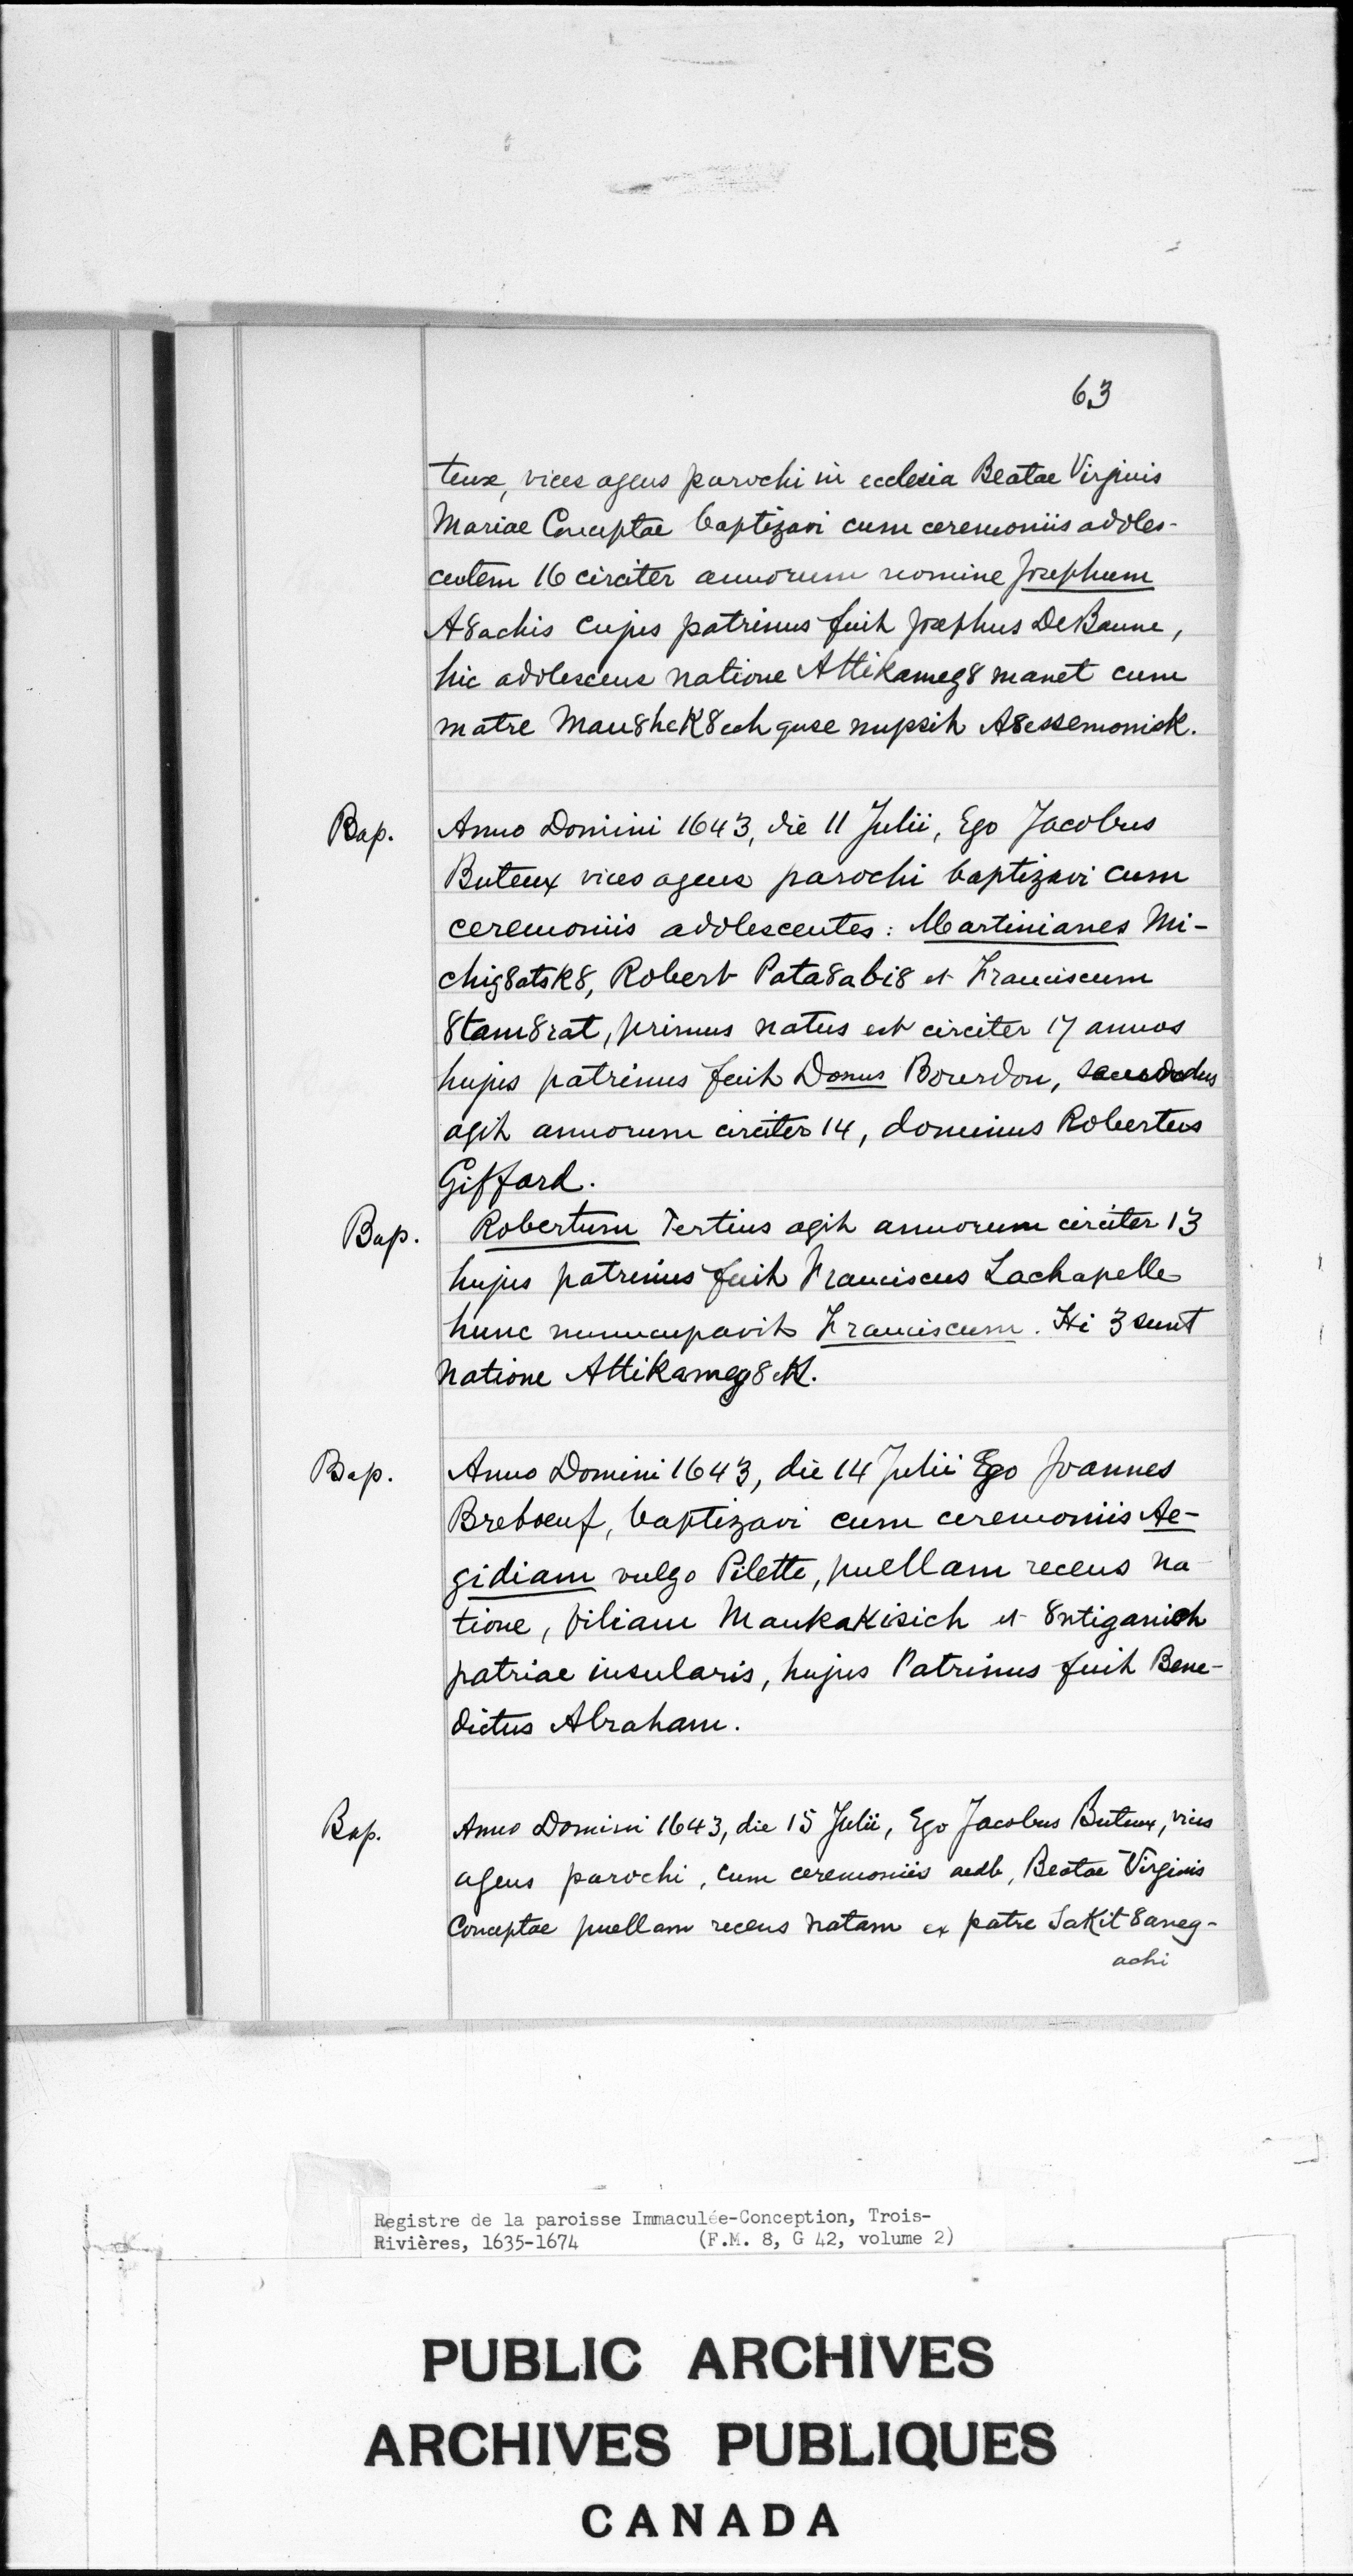 63
teux, vices agens parochi in ecclesia Beatae Virginis
Mariae Conceptae baptizavi cum ceremoniis adoles-
centem 16 circiter annorum nomine Josephum
A8achis cujus patrinus fuit Josephus DeBaune,
hic adolescens natione Attikameg8 manet cum
matre Mau8heK8ech quae nupsit A8essemonick.
Bap. Anno Domini 1643, die 11 Julii, Ego Jacobus
Buteux vices agens parochi baptizavi cum
ceremoniis adolescentes: Martinianes Mi-
chig8atsK8, Robert Pata8abi8 et Franciscum
8tam8rat, primus natus est circiter 17 annos
hujus patrinus fuit Donus Bourdon,
agit annorum circiter 14, dominus Robertus
Giffard.
Bap. Robertum Tertius agit annorum circiter 13
hujus patrinus fuit Franciscus Lachapelle
hunc nunucupavit Franciscum. Hi 3 sunt
natione Attikameg8eK.
Bap. Anno Domini 1643, die 14 Julii Ego Joannes
Breboeuf, baptizavi cum ceremoniis Ae-
gidiam vulgo Pilette, puellam recens na-
tione, filiam Maukakisich et 8ntiganich
patriae insularis, hujus Patrinus fuit Bene-
dictus Abraham.
Bap. Anno Domini 1643, die 15 Julii, Ego Jacobus Buteux, vices
agens parochi, cum ceremoniis aedb, Beatae Virginis
Conceptae puellam recens natam ex patre SaKit8aneg-
achi
Registre de la paroisse Immaculée-Conception, Trois-
Rivières, 1635-1674 (F.M. 8, G 42, volume 2)
PUBLIC ARCHIVES
ARCHIVES PUBLIQUES
CANADA